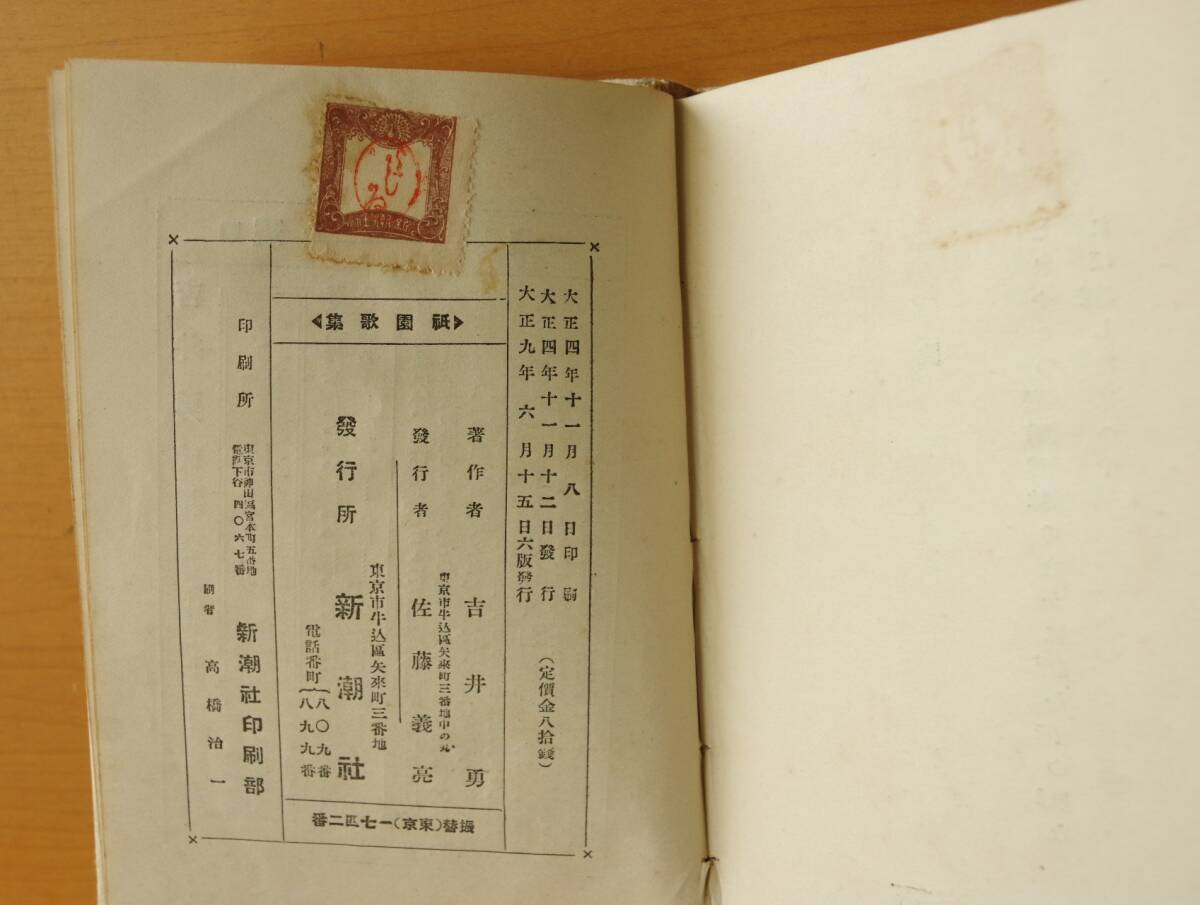 大正四年十一月八日印刷
大正四年十一月十二日發行
大正九年六月十五日六版發行
(定價金八拾錢)
《祇園歌集》
著作者 吉井勇
東京市牛込區矢來町三番地中の丸
發行者 佐藤義亮
東京市牛込區矢來町三番地
發行所 新潮社
電話番町{八〇九番
八九九番
振替(東京)一七四二番
東京市神田區宮本町五番地
電話下谷四〇六七番
印刷所 新潮社印刷部
刷者 高橋治一